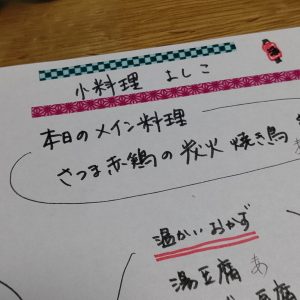 小料理 よしこ
本日のメイン料理
さつま赤鶏の炭火焼き鳥
温かいおかず
湯豆腐 あ
豆腐